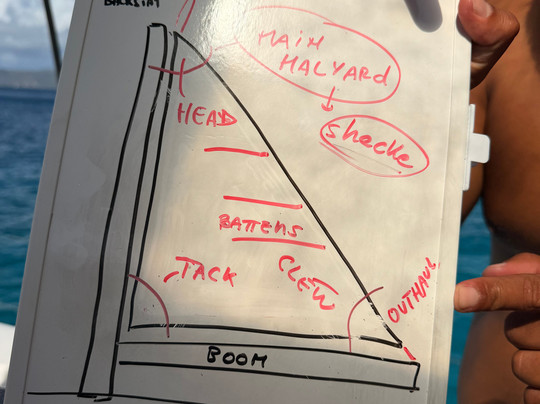 BACKSTAY
MAIN
HALYARD
HEAD
shackle
BATTENS
TACK
CLEW
OUTHAUL
BOOM